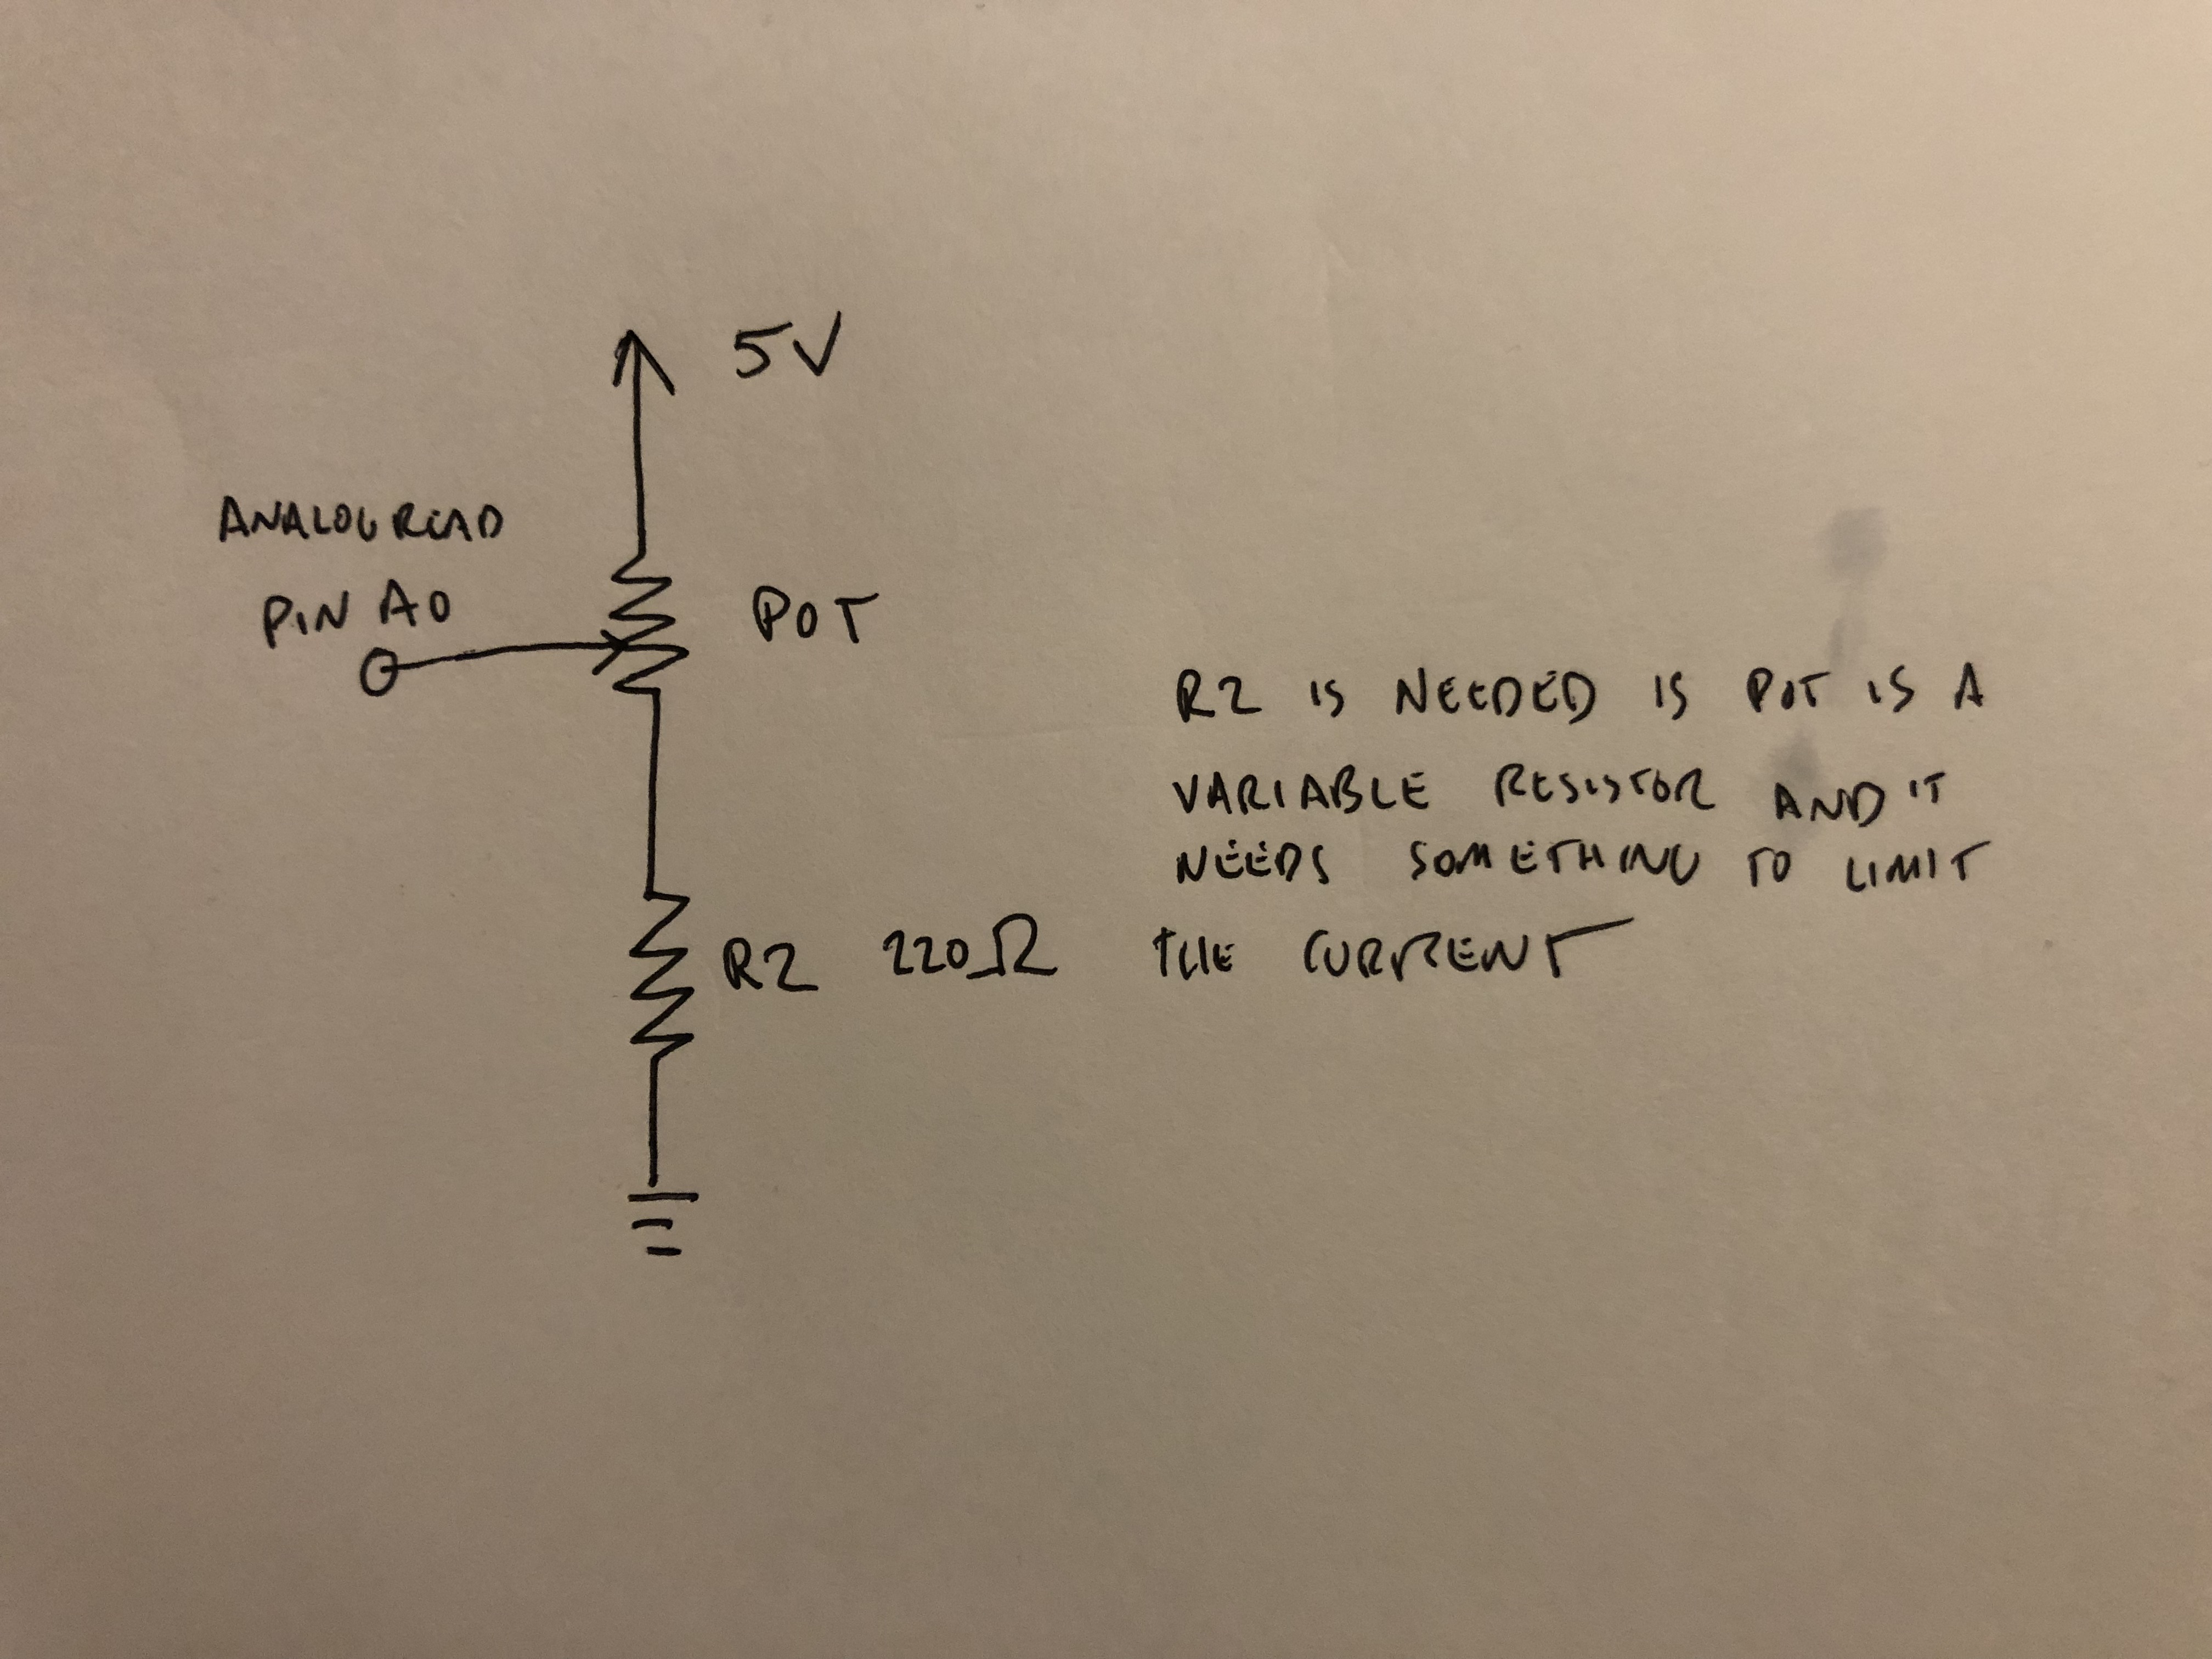 5V
ANALOG READ
PIN A0
POT
R2 IS NEEDED IS POT IS A
VARIABLE RESISTOR AND IT
NEEDS SOMETHING TO LIMIT
THE CURRENT
R2 220Ω